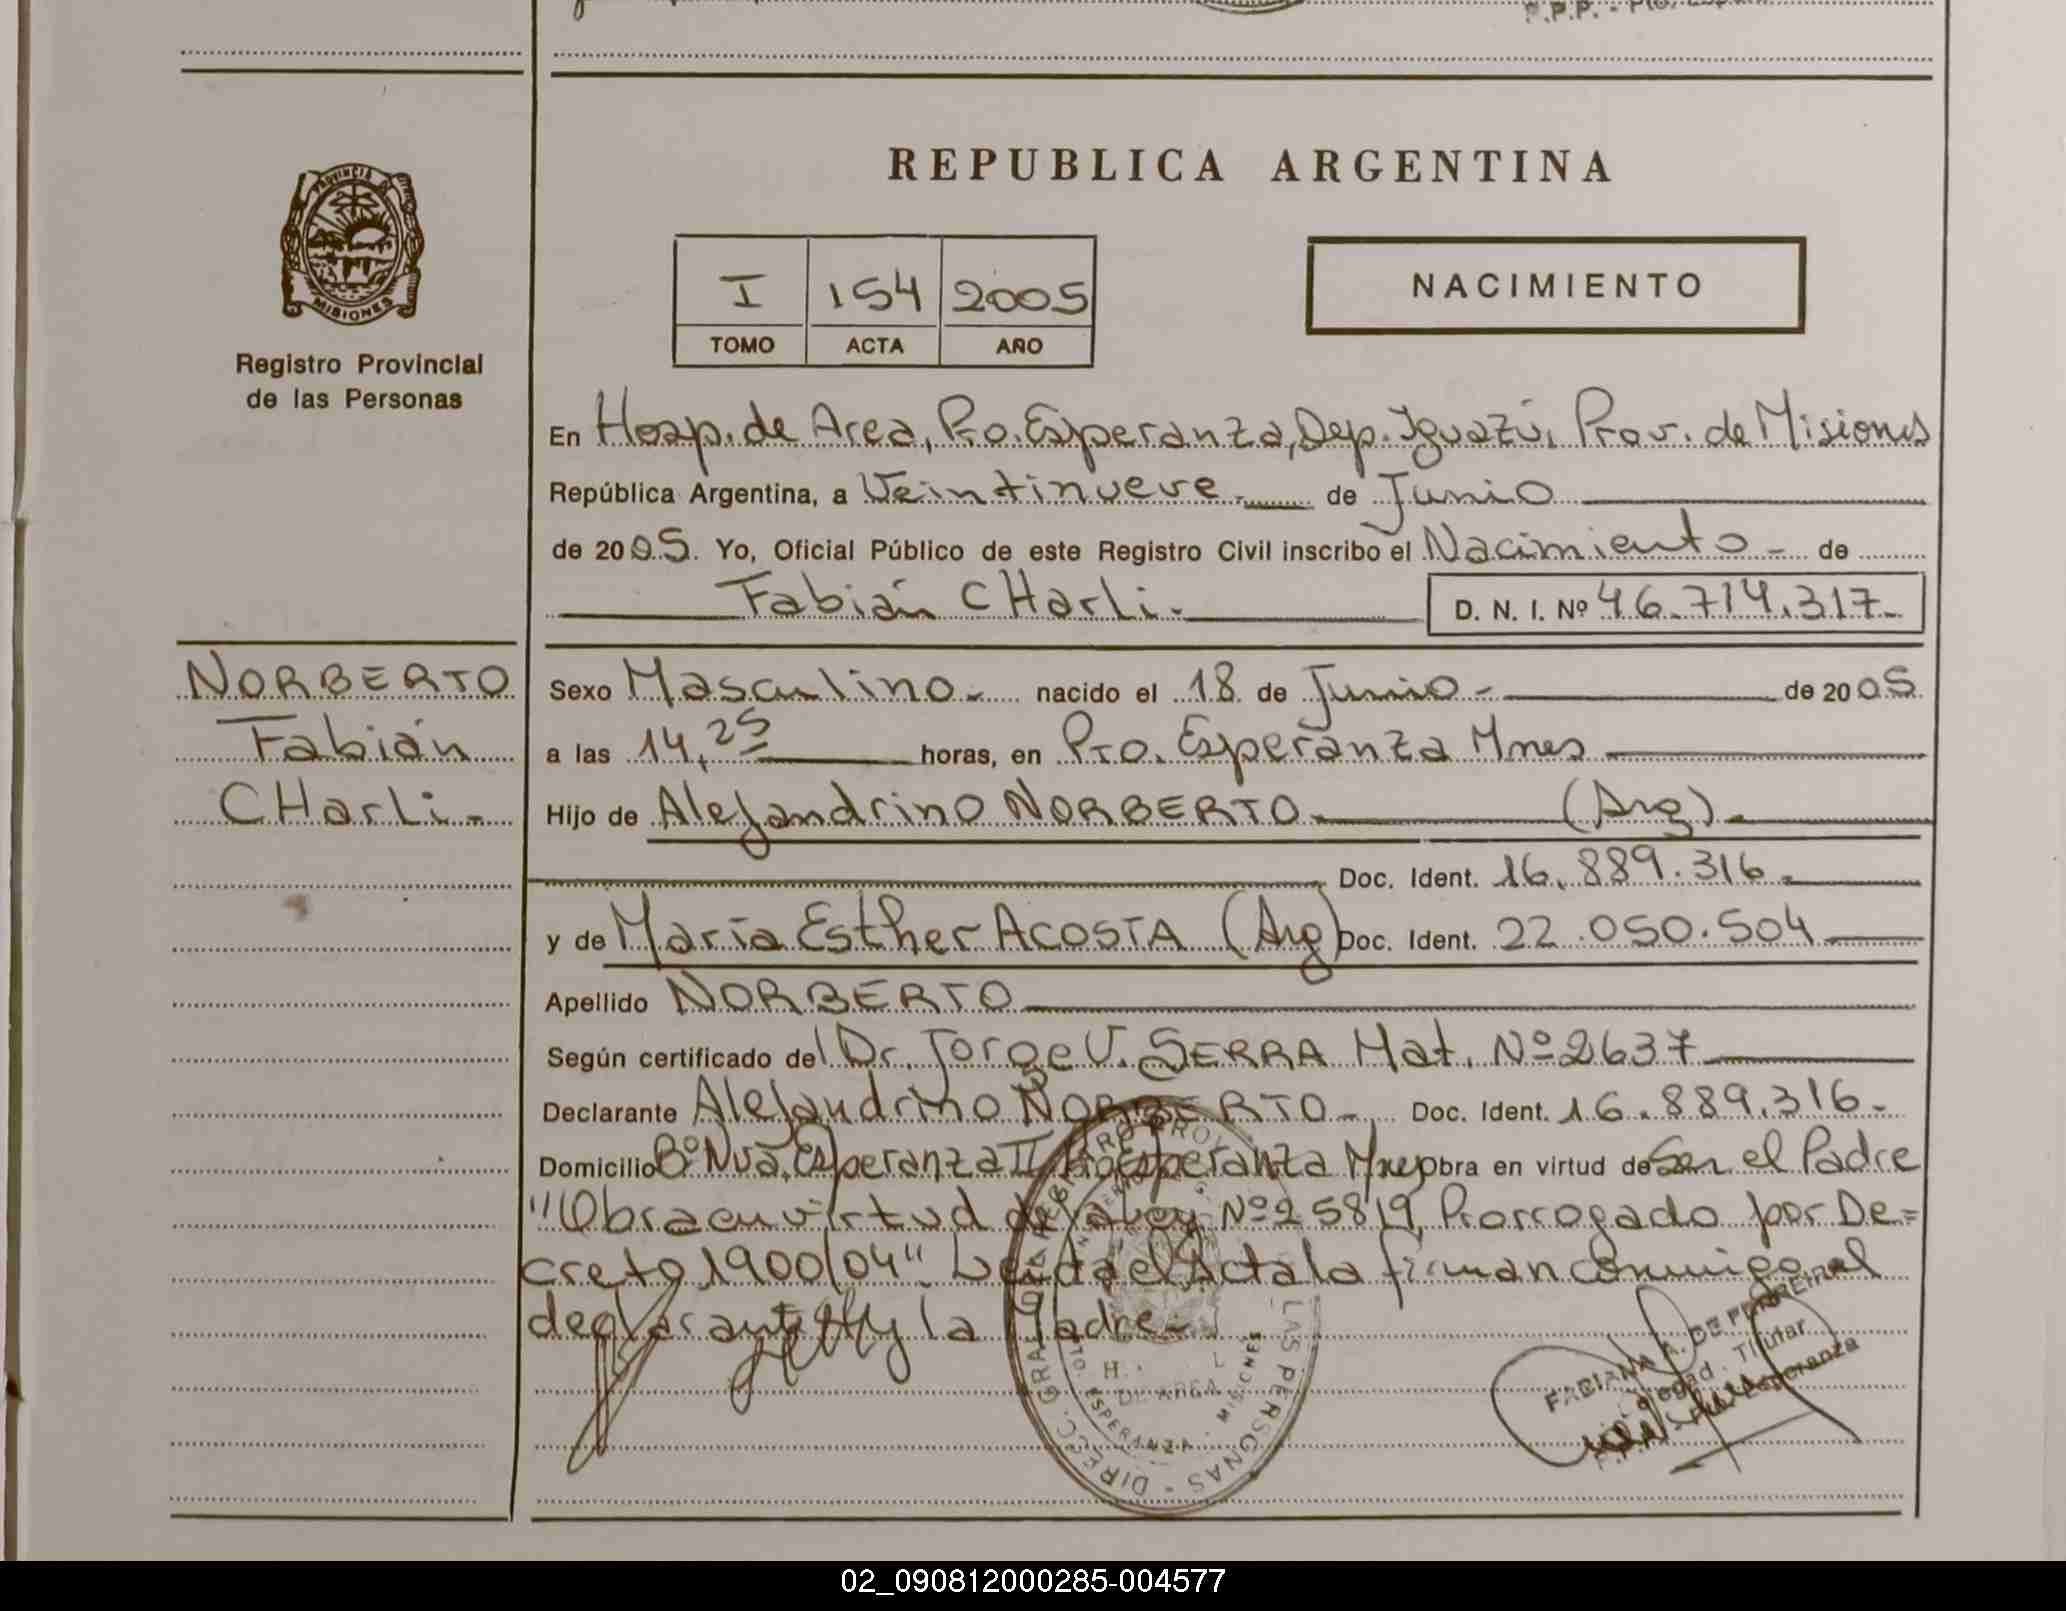 PROVINCIA DE
MISIONES
Registro Provincial
de las Personas
NORBERTO
Fabián
CHarli.-
REPUBLICA ARGENTINA
I 154 2005
TOMO ACTA AÑO
NACIMIENTO
En Hosp. de Area, Pto. Esperanza, Dep. Iguazú, Prov. de Misiones
República Argentina, a Veintinueve.- de Junio
de 2005. Yo, Oficial Público de este Registro Civil inscribo el Nacimiento - de
Fabián CHarli.- D. N. I. Nº 46.714.317.-
Sexo Masculino.- nacido el 18 de Junio.- de 2005.
a las 14,25 horas, en Pto. Esperanza Mnes
Hijo de Alejandrino NORBERTO (Arg).
Doc. Ident. 16.889.316.
y de María Esther ACOSTA (Arg) Doc. Ident. 22.050.504
Apellido NORBERTO
Según certificado del Dr. Jorge V. SERRA Mat. Nº 2637
Declarante Alejandrino NORBERTO.- Doc. Ident. 16.889.316.-
Domicilio Bº Nva. Esperanza II Pto Esperanza Mnes obra en virtud de Ser el Padre
"Obra en virtud de la Ley Nº 25819, Prorrogado por De=
creto 1900/04". Leída el Acta la firman conmigo el
declarante y la Madre.-
DIRECC. GRAL. REGISTRO PROV. LAS PERSONAS
DE AREA
PTO. ESPERANZA - MISIONES
FABIANA A. DE FERREIRA
Titular
Esperanza
02_090812000285-004577